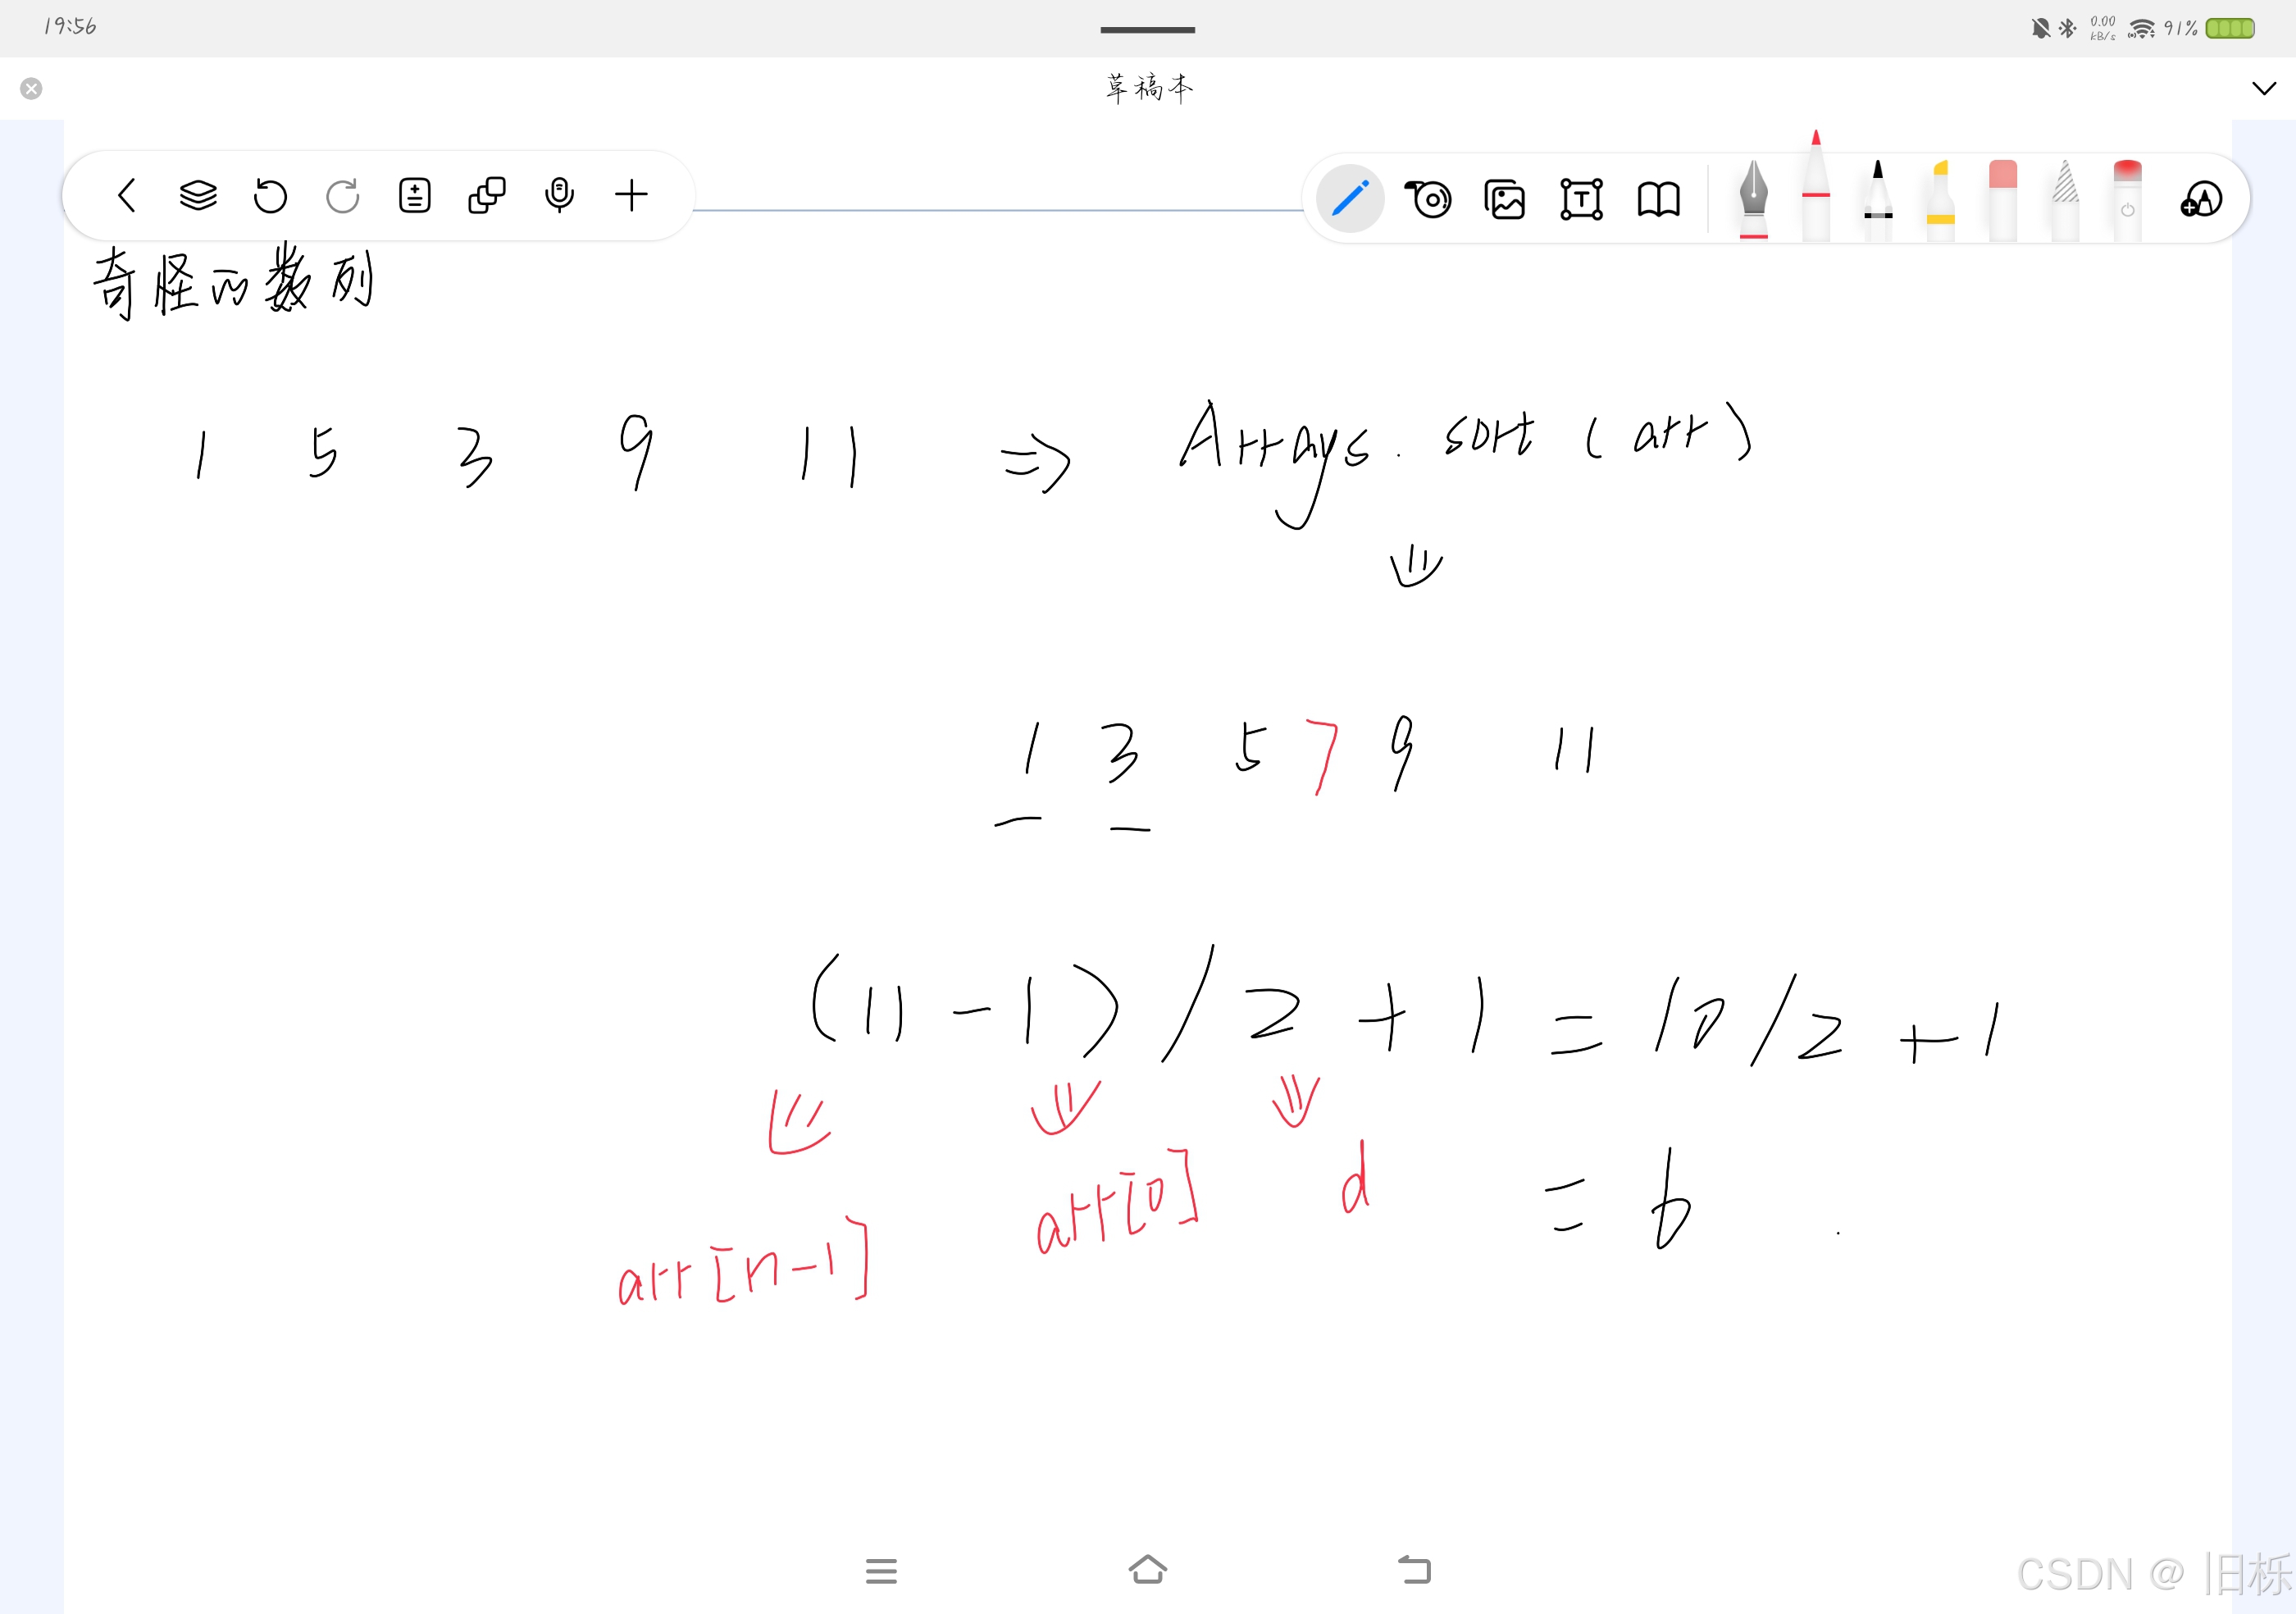 19:56
0.00 kB/s 91%
草稿本
T
奇怪的数列
1 5 3 9 11 ⇒ Arrays. sort (arr)
⇓
1 3 5 7 9 11
(11-1)/2+1=10/2+1
⇓ ⇓ ⇓
arr[n-1] arr[0] d = 6 .
CSDN @ 旧栎